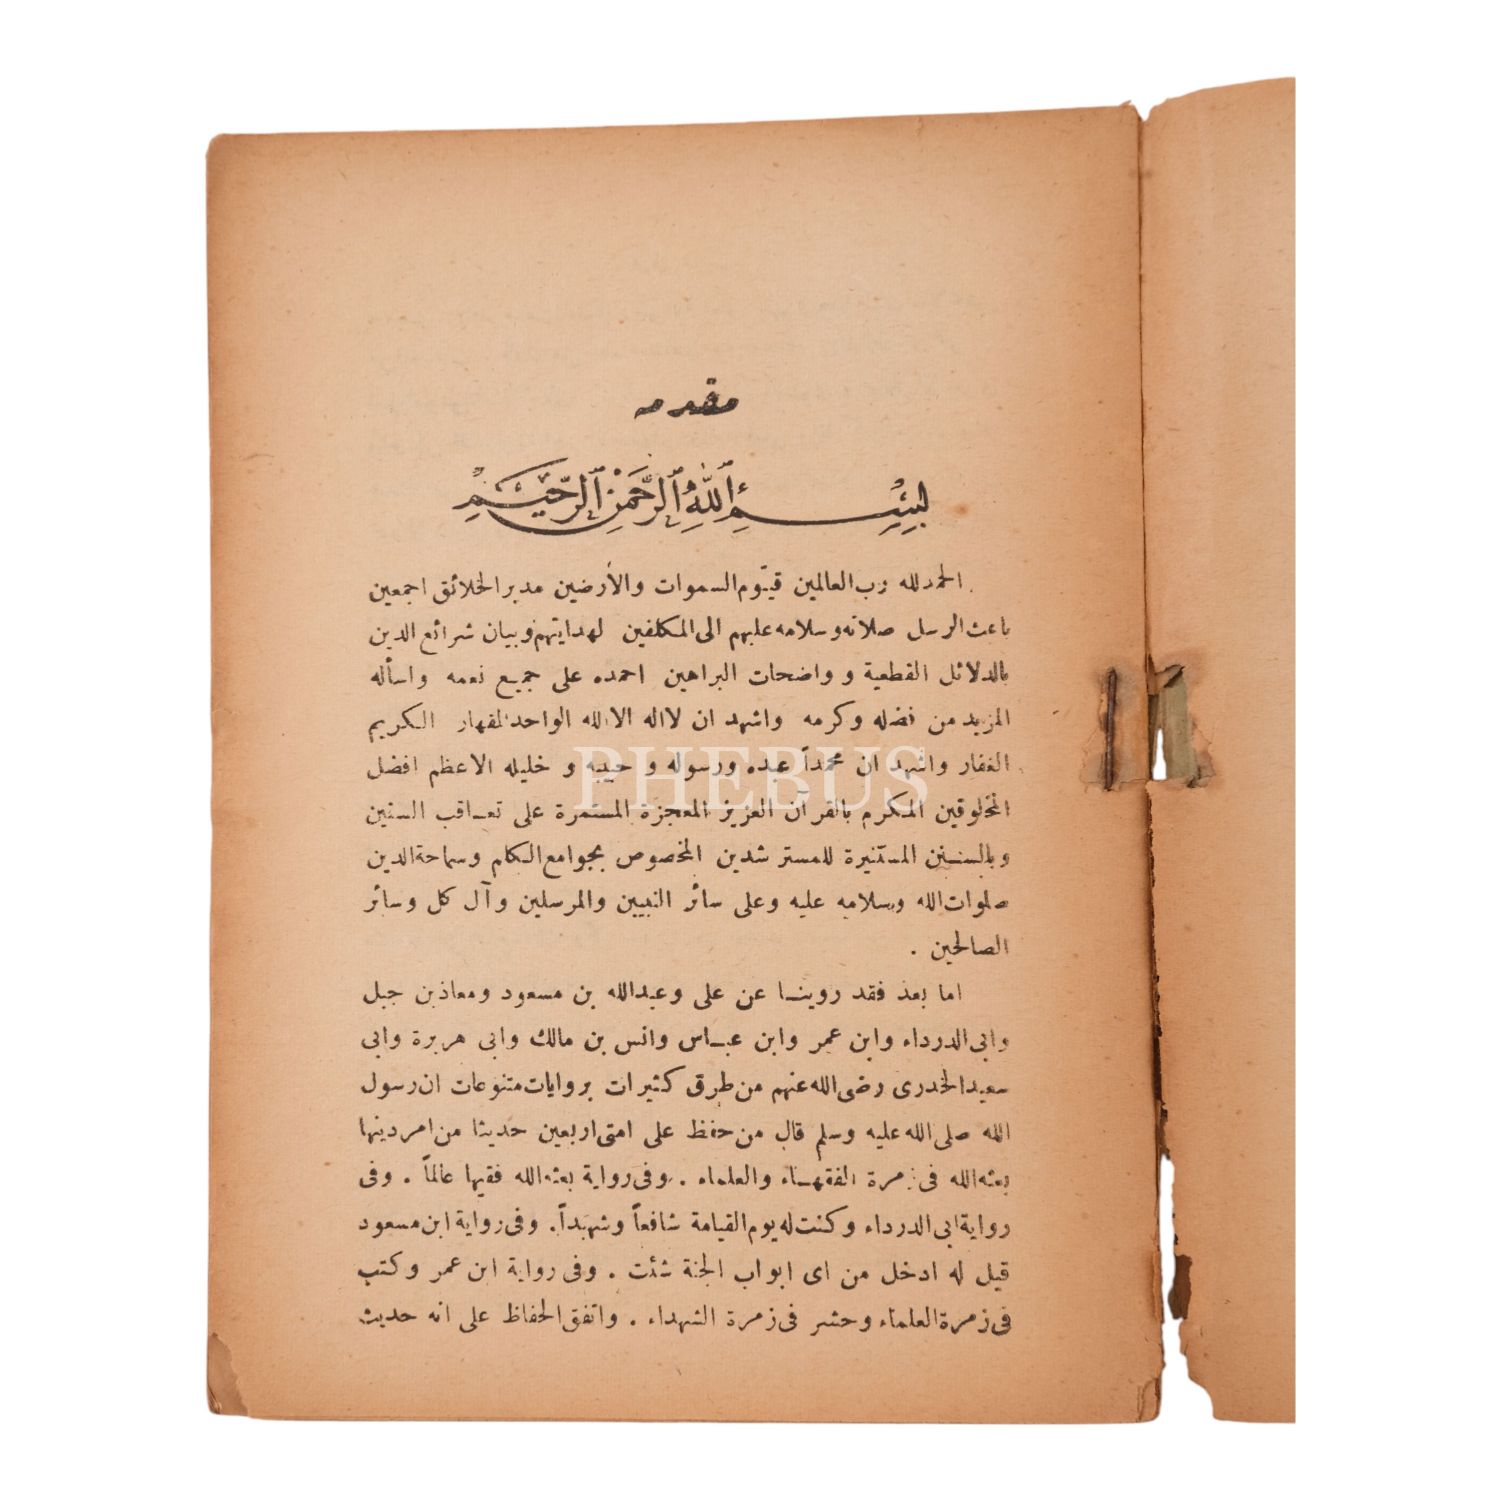 مقدمه
بِسْمِ ٱللَّهِ ٱلرَّحْمَنِ ٱلرَّحِيمِ
الحمدلله رب العالمين قيّوم السموات والأرضين مدبر الخلائق اجمعين
باعث الرسل صلاته وسلامه عليهم الى المكلفين لهدايتهم وبيان شرائع الدين
بالدلائل القطعية و واضحات البراهين احمده على جميع نعمه واسأله
المزيد من فضله وكرمه واشهد ان لااله الا الله الواحد القهار الكريم
الغفار واشهد ان محمداً عبده ورسوله و حبيبه و خليله الاعظم افضل
المخلوقين المكرم بالقرآن العزيز المعجزة المستمرة على تعاقب السنين
وبالسنن المستنيرة للمسترشدين المخصوص بجوامع الكلم وسماحة الدين
صلوات الله وسلامه عليه وعلى سائر النبيين والمرسلين وآل كل وسائر
الصالحين .
اما بعد فقد روينا عن على وعبدالله بن مسعود ومعاذ بن جبل
وابى الدرداء وابن عمر وابن عباس وانس بن مالك وابى هريرة وابى
سعيد الخدرى رضى الله عنهم من طرق كثيرات بروايات متنوعات ان رسول
الله صلى الله عليه وسلم قال من حفظ على امتى اربعين حديثا من امر دينها
بعثه الله فى زمرة الفقهاء والعلماء . وفى رواية بعثه الله فقيها عالماً . وفى
رواية ابى الدرداء وكنت له يوم القيامة شافعاً وشهيداً . وفى رواية ابن مسعود
قيل له ادخل من اى ابواب الجنة شئت . وفى رواية ابن عمر وكتب
فى زمرة العلماء وحشر فى زمرة الشهداء . واتفق الحفاظ على انه حديث
PHEBUS